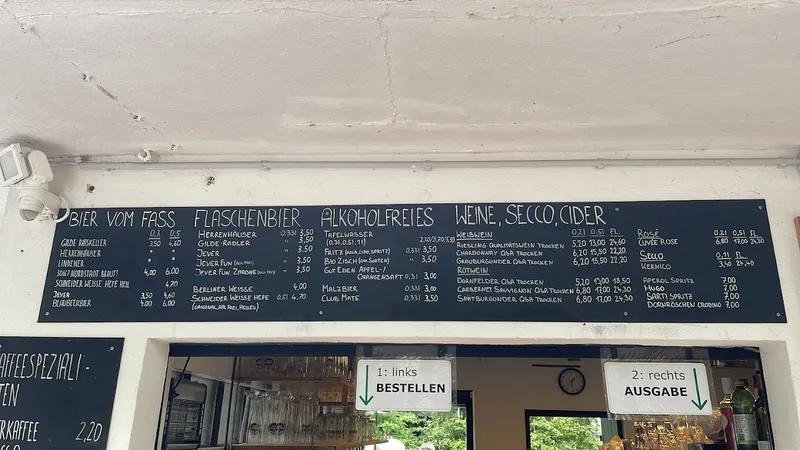 BIER VOM FASS
0,3 0,5
GILDE RATSKELLER 3,50 4,60
HERRENHÄUSER " "
LINDENER " "
30167 NORDSTADT BRAUT! 4,00 6,00
SCHNEIDER WEISSE HEFE HELL 4,70
JEVER 3,50 4,60
BLAUBEERBIER 4,00 6,00
FLASCHENBIER
HERRENHÄUSER 0,33l 3,50
GILDE-RADLER " 3,50
JEVER " 3,50
JEVER FUN " 3,50
JEVER FUN ZITRONE " 3,50
BERLINER WEISSE 4,00
SCHNEIDER WEISSE HEFE 0,5l 4,70
(ORIGINAL, ALK. FREI, HELLES)
ALKOHOLFREIES
TAFELWASSER
(0,3l,0,5l,1l)
FRITZ (KOLA,ORA,SPRITZ) 0,33l 3,50
BIO ZISCH " 3,50
GUT EDEN APFEL-/
ORANGENSAFT 0,3l 3,00
MALZBIER 0,33l 3,00
CLUB MATE 0,33l 3,50
WEINE, SECCO, CIDER
WEIßWEIN 0,2l 0,5l FL.
RIESLING QUALITÄTSWEIN TROCKEN 5,20 13,00 24,60
CHARDONNAY QWA TROCKEN 6,20 15,50 22,20
GRAUBURGUNDER QWA TROCKEN 6,20 15,50 22,20
ROTWEIN
DORNFELDER QWA TROCKEN 5,20 13,00 18,50
CABERNET SAUVIGNON QWA TROCKEN 6,80 17,00 24,30
SPÄTBURGUNDER QWA TROCKEN 6,80 17,00 24,30
ROSÉ 0,2l 0,5l FL.
CUVÉE ROSE 6,80 17,00 24,30
SECCO 0,1l FL.
KERNICO 3,40 24,40
APEROL SPRITZ 7,00
HUGO 7,00
SARTI SPRITZ 7,00
DORNRÖSCHEN CRODINO 7,00
AFFEESPEZIALI-
TEN
RKAFFEE 2,20
1: links
BESTELLEN
2: rechts
AUSGABE